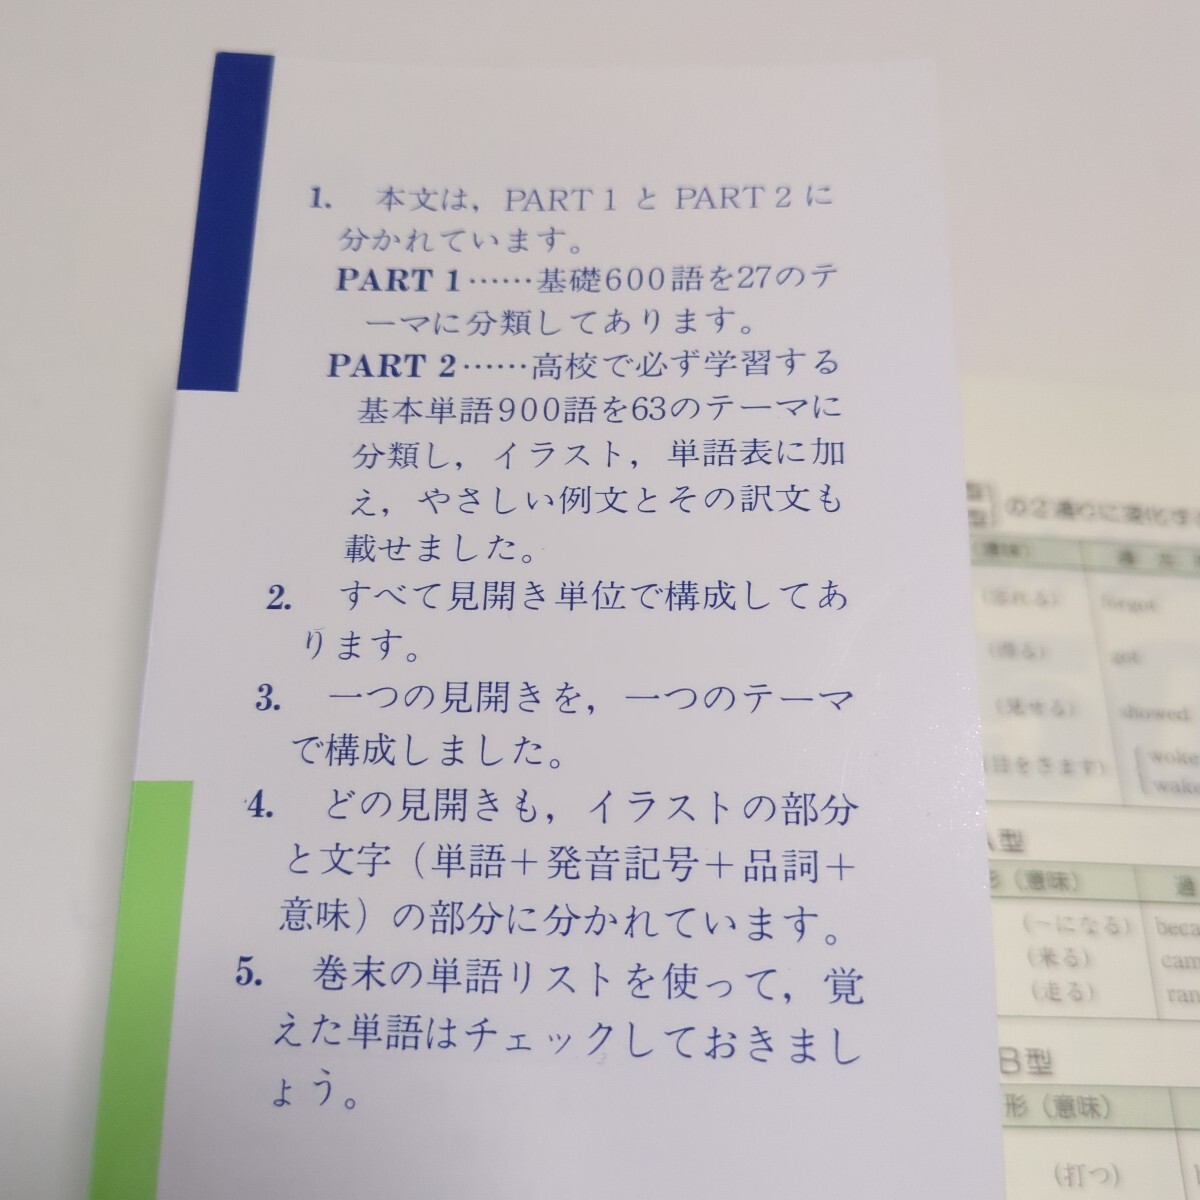 1. 本文は，PART 1 と PART 2 に
分かれています。
PART 1……基礎600語を27のテ
ーマに分類してあります。
PART 2……高校で必ず学習する
基本単語900語を63のテーマに
分類し，イラスト，単語表に加
え，やさしい例文とその訳文も
載せました。
2. すべて見開き単位で構成してあ
ります。
3. 一つの見開きを，一つのテーマ
で構成しました。
4. どの見開きも，イラストの部分
と文字（単語＋発音記号＋品詞＋
意味）の部分に分かれています。
5. 巻末の単語リストを使って，覚
えた単語はチェックしておきまし
ょう。
の2通りに変化する
（忘れる） forgot
（得る） got
（見せる） showed
目をさます） woke
wake
A型
形（意味） 過
（～になる） beca
（来る） cam
（走る） ran
B型
形（意味）
（打つ）